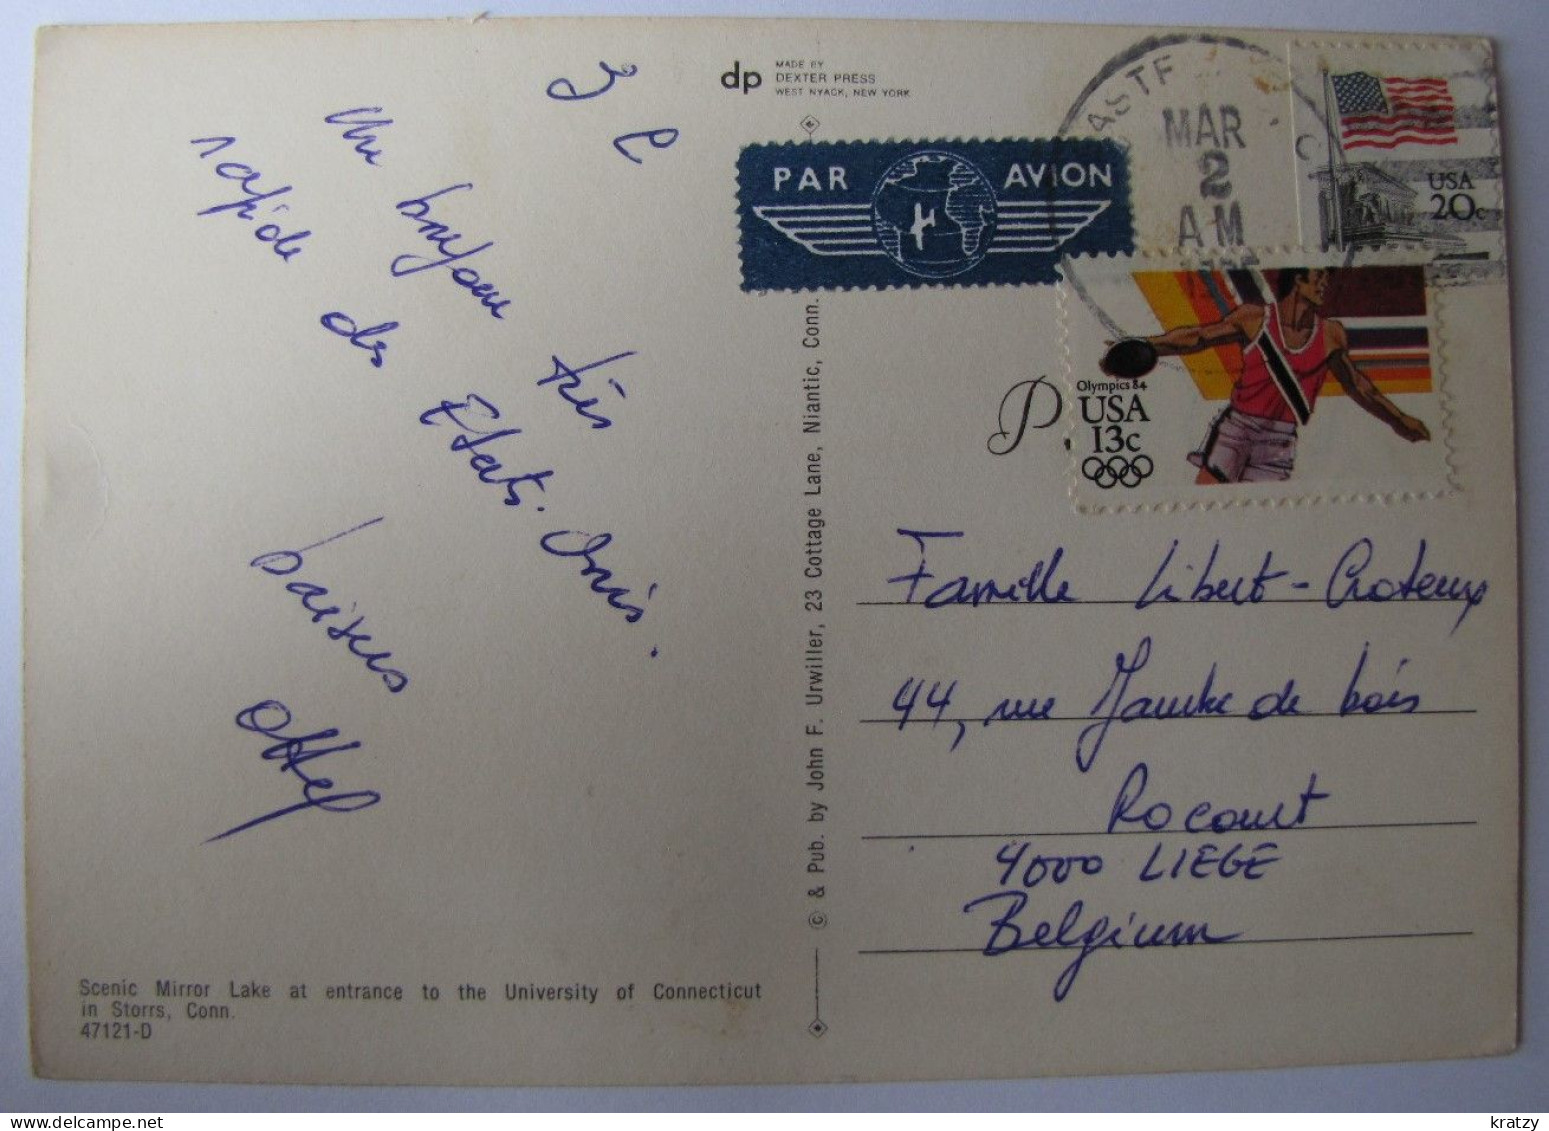 dp
MADE BY
DEXTER PRESS
WEST NYACK, NEW YORK
Un bonjour très
rapide des Etats-Unis.
baisers
PAR AVION
MAR
2
AM
USA
20c
Olympics 84
USA
13c
P.
Famille Libert-Croteux
44, rue de bois
Rocourt
4000 LIEGE
Belgium
© & Pub. by John F. Urwiller, 23 Cottage Lane, Niantic, Conn.
Scenic Mirror Lake at entrance to the University of Connecticut
in Storrs, Conn.
47121-D
kratzy